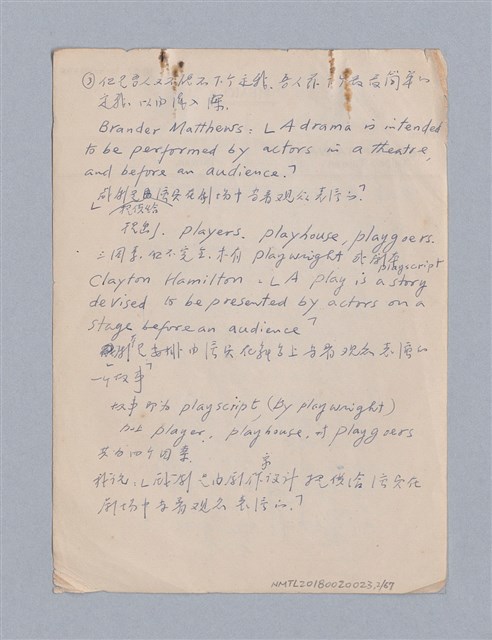 ③ 但是吾人又不得不下个定義、吾人作一个最最簡單的
定義、以由淺入深.
Brander Matthews: 「A drama is intended
to be performed by actors in a theatre,
and before an audience.」
「戲劇是由演員在劇場中当着观众表演的」
提供給
提出 players. playhouse, playgoers.
三因素. 但不完全. 未有 playwright 或劇本
playscript
Clayton Hamilton: 「A play is a story
devised to be presented by actors on a
stage before an audience」
「戲劇是安排由演員在舞台上当着观众表演的
一个故事」
故事即为 playscript, (by playwright)
player, playhouse, of playgoers
共为四个因素.
我说: 「戲劇是由劇作家设计提供給演員在
劇场中当着观众表演的.」
NMTL20180020023, 2/67